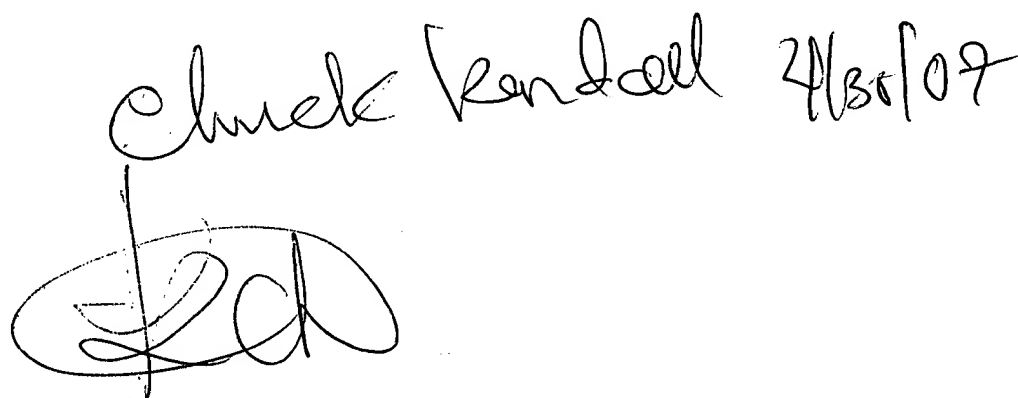 Chuck Kendall 4/30/07